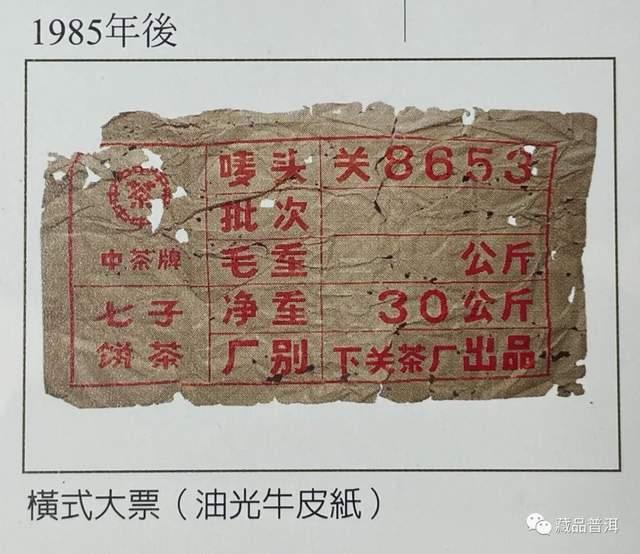 1985年後
唛头 关8653
批次
中茶牌 毛重 公斤
七子 净重 30公斤
饼茶 厂别 下关茶厂出品
橫式大票（油光牛皮紙）
藏品普洱